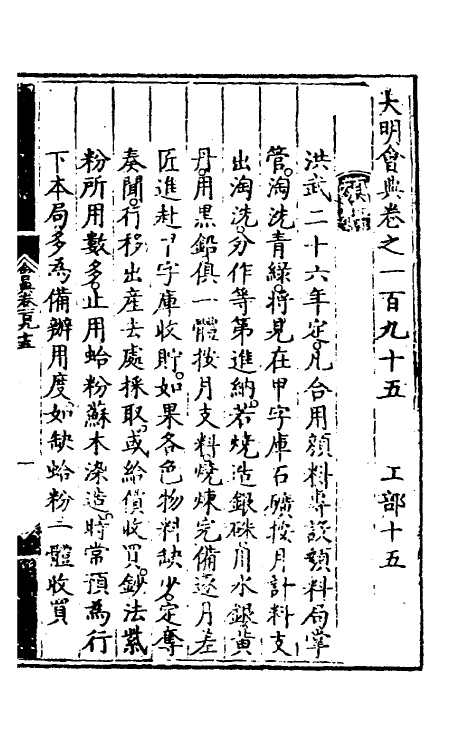 大明會典卷之一百九十五 工部十五
顏料
洪武二十六年定。凡合用顏料專設顏料局掌
管。淘洗青綠。將見在甲字庫石礦按月計料支
出淘洗。分作等第進納。若燒造銀硃用水銀黃
丹。用黑鉛俱一體按月支料燒煉完備逐月差
匠進赴甲字庫收貯。如果各色物料缺少。定奪
奏聞。行移出產去處採取。或給價收買。鈔法紫
粉所用數多。止用蛤粉蘇木染造。時常預為行
下本局。多為備辦用度。如缺蛤粉一體收買
會典卷一百九十五
一